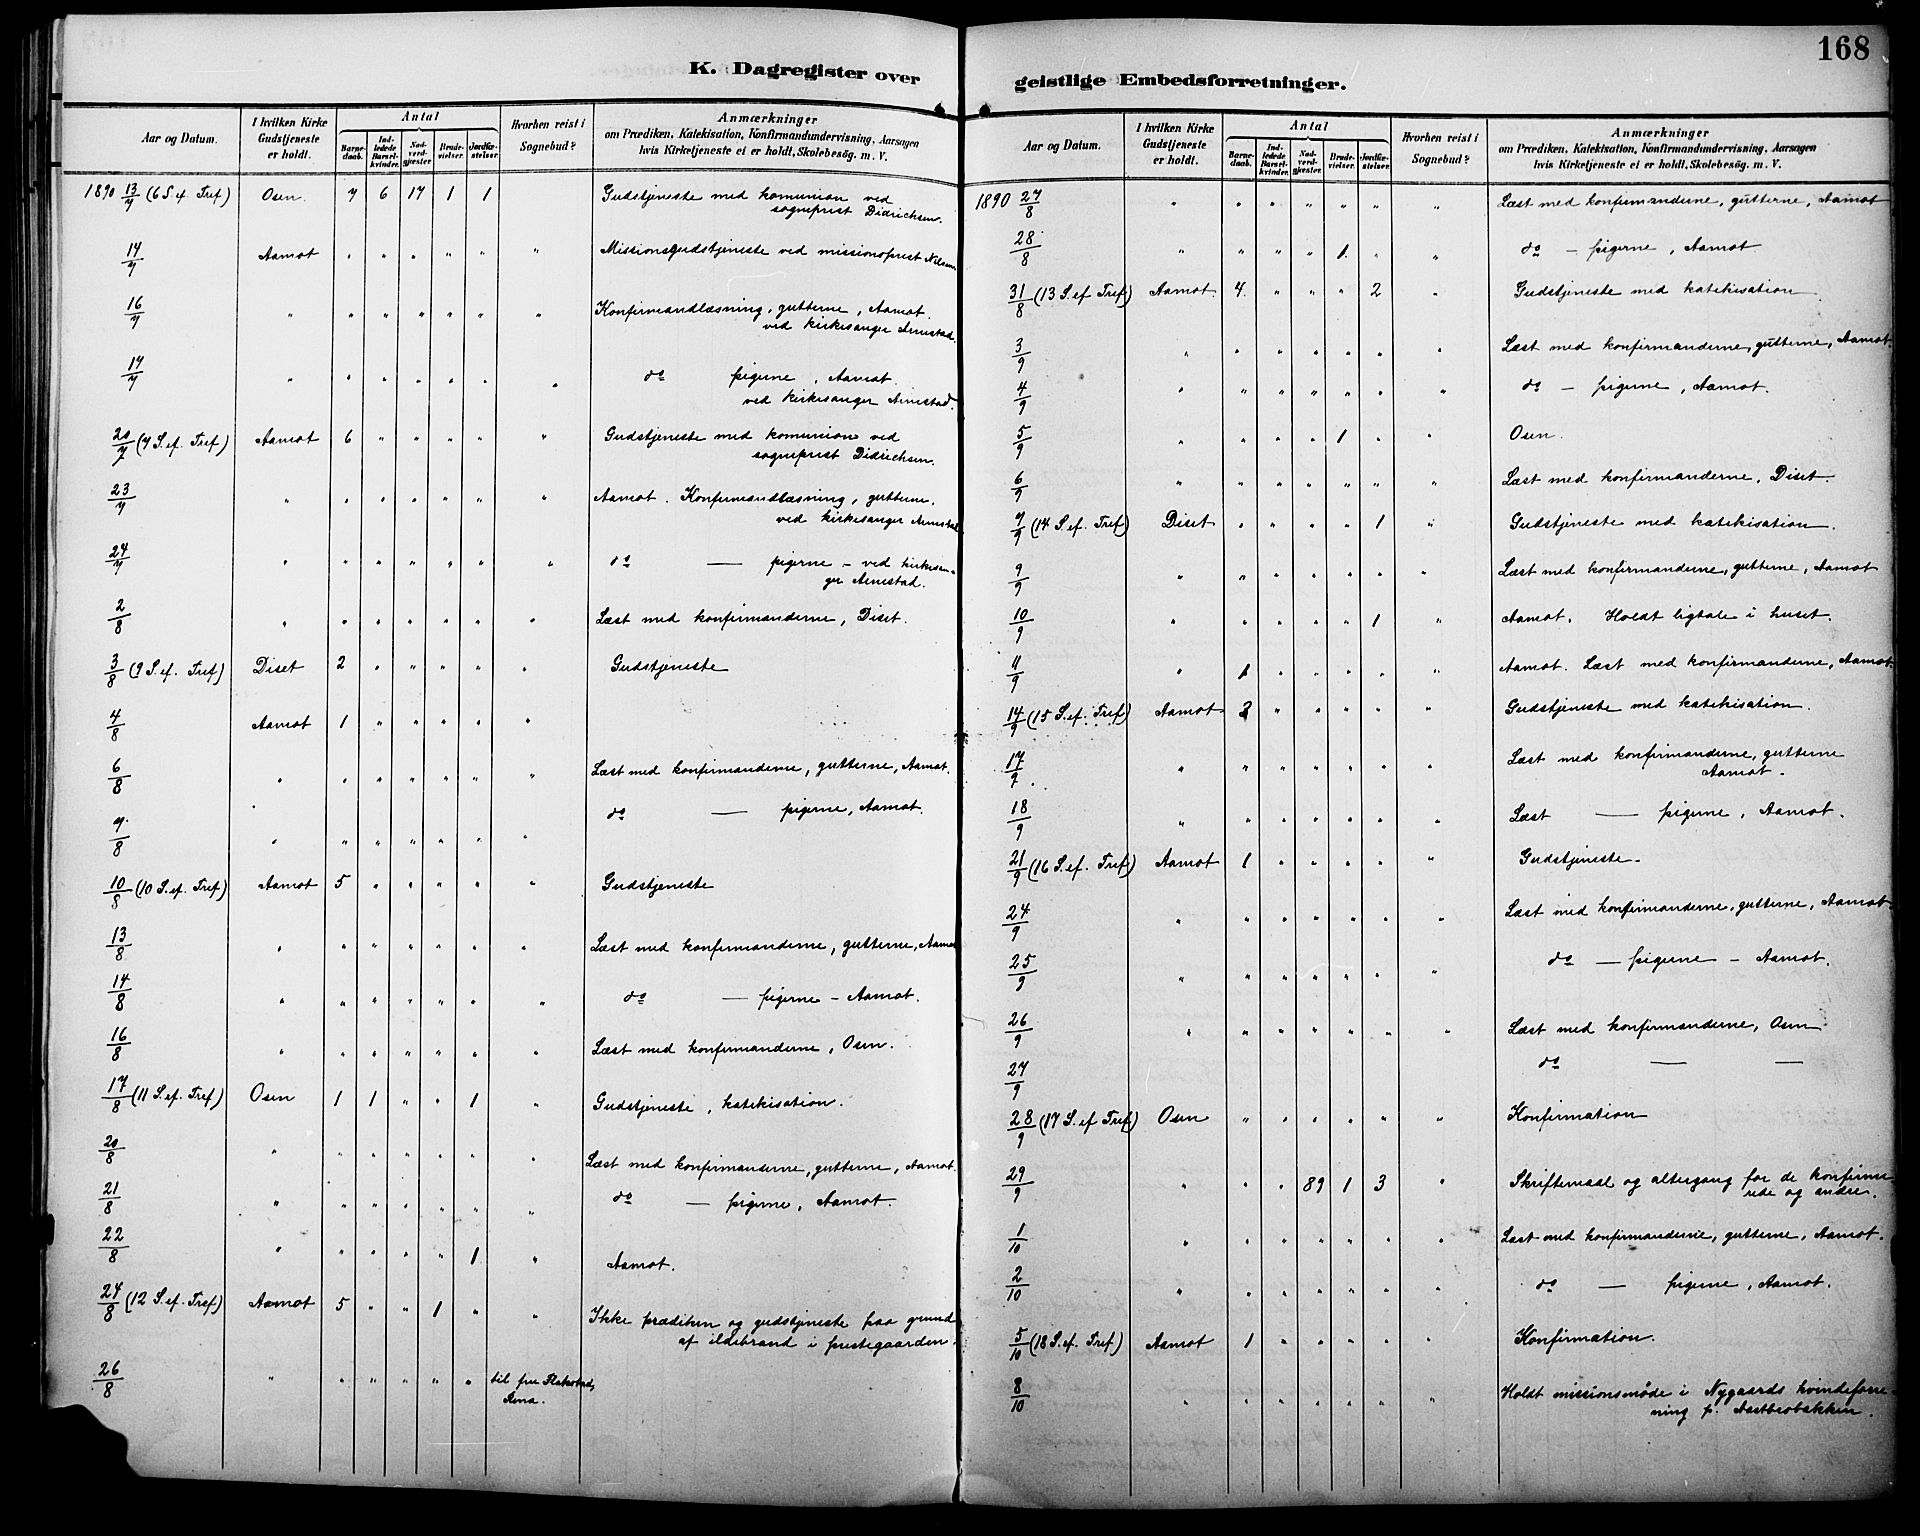 168
K. Dagregister over
geistlige Embedsforretninger.
Aar og Datum. I hvilken Kirke Gudstjeneste er holdt. Antal Barnedaab. Indledede Barselkvinder. Nadverdgjester Brudevielser. Jordfæstelser. Hvorhen reist i Sognebud? Anmærkninger
om Prædiken, Katekisation, Konfirmandundervisning, Aarsagen
hvis Kirketjeneste ei er holdt, Skolebesög. m. V.
1890 13/7 (6 S. ef. Tref) Osen. 7 6 17 1 1 Gudstjeneste med komunion ved
sogneprest Didrichsen.
14/7 Aamot " " " " " " Missionsgudstjeneste ved missionsprest Nilsen
16/7 " " " " " " " Konfirmandlæsning, gutterne, Aamot.
ved kirkesanger Arnestad.
17/7 " " " " " " " do pigerne, Aamot.
ved kirkesanger Arnestad.
20/7 (7 S. ef. Tref) Aamot 6 " " " " " Gudstjeneste med komunion ved
sogneprest Didrichsen.
23/7 " " " " " " " Aamot. Konfirmandlæsning, gutterne.
ved kirkesanger Arnestad
24/7 " " " " " " " do — pigerne – ved kirkesan-
ger Arnestad.
2/8 " " " " " " " Læst med konfirmanderne, Diset.
3/8 (9 S. ef. Tref) Diset 2 " " " " " Gudstjeneste
4/8 Aamot 1 " " " " "
6/8 " " " " " " " Læst med konfirmanderne, gutterne, Aamot.
7/8 " " " " " " " do — pigerne, Aamot.
10/8 (10 S. ef. Tref) Aamot 5 " " " " " Gudstjeneste
13/8 " " " " " " " Læst med konfirmanderne, gutterne, Aamot
14/8 " " " " " " " do — pigerne – Aamot.
16/8 " " " " " " " Læst med konfirmanderne, Osen.
17/8 (11 S. ef. Tref) Osen 1 1 " " 1 " Gudstjeneste, katekisation.
20/8 " " " " " " " Læst med konfirmanderne, gutterne, Aamot.
21/8 " " " " " " " do — pigerne, Aamot.
22/8 " " " " " 1 " Aamot.
24/8 (12 S. ef. Tref) Aamot 5 " " 1 " " Ikke prædiken og gudstjeneste paa grund
af ildebrand i prestegaarden.
26/8 " " " " " " til fru
Rena.
Aar og Datum. I hvilken Kirke Gudstjeneste er holdt. Antal Barnedaab. Indledede Barselkvinder. Nadverdgjester. Brudevielser. Jordfæstelser. Hvorhen reist i Sognebud? Anmærkninger
om Prædiken, Katekisation, Konfirmandundervisning, Aarsagen
hvis Kirketjeneste ei er holdt, Skolebesög. m. V.
1890 27/8 " " " " " " " Læst med konfirmanderne, gutterne, Aamot
28/8 " " " " 1. " " do – pigerne, Aamot.
31/8 (13 S. ef Tref) Aamot. 4. " " " 2 " Gudstjeneste med katekisation.
3/9 " " " " " " " Læst med konfirmanderne, gutterne, Aamot.
4/9 " " " " " " " do – pigerne, Aamot.
5/9 " " " " 1 " " Osen.
6/9 " " " " " " " Læst med konfirmanderne, Diset.
7/9 (14 S. ef. Tref) Diset " " " " 1 " Gudstjeneste med katekisation.
9/9 " " " " " " " Læst med konfirmanderne, gutterne, Aamot
10/9 " " " " " 1 " Aamot. Holdt ligtale i huset.
11/9 " 1 " " " " " Aamot. Læst med konfirmanderne, Aamot.
14/9 (15 S. ef. Tref) Aamot " " " " " Gudstjeneste med katekisation.
17/9 " " " " " " " Læst med konfirmanderne, gutterne
Aamot.
18/9 " " " " " " " Læst — pigerne, Aamot.
21/9 (16 S. ef. Tref) Aamot 1 " " " " " Gudstjeneste.
24/9 " " " " " " " Læst med konfirmanderne, gutterne, Aamot.
25/9 " " " " " " " do — pigerne – Aamot.
26/9 " " " " " " " Læst med konfirmanderne, Osen
27/9 do — —
28/9 (17 S. ef Tref) Osen " " " " " " Konfirmation
29/9 " " " 89 1 3 " Skriftemaal og altergang for de konfirme
rede og andre.
1/10 " " " " " " " Læst med konfirmanderne, gutterne, Aamot.
2/10 " " " " " " " do — pigerne, Aamot.
5/10 (18 S. ef. Tref) Aamot 1 " " " " " Konfirmation.
8/10 " " " " " " " Holdt missionsmöde i Nygaards kvindefore-
ning p.